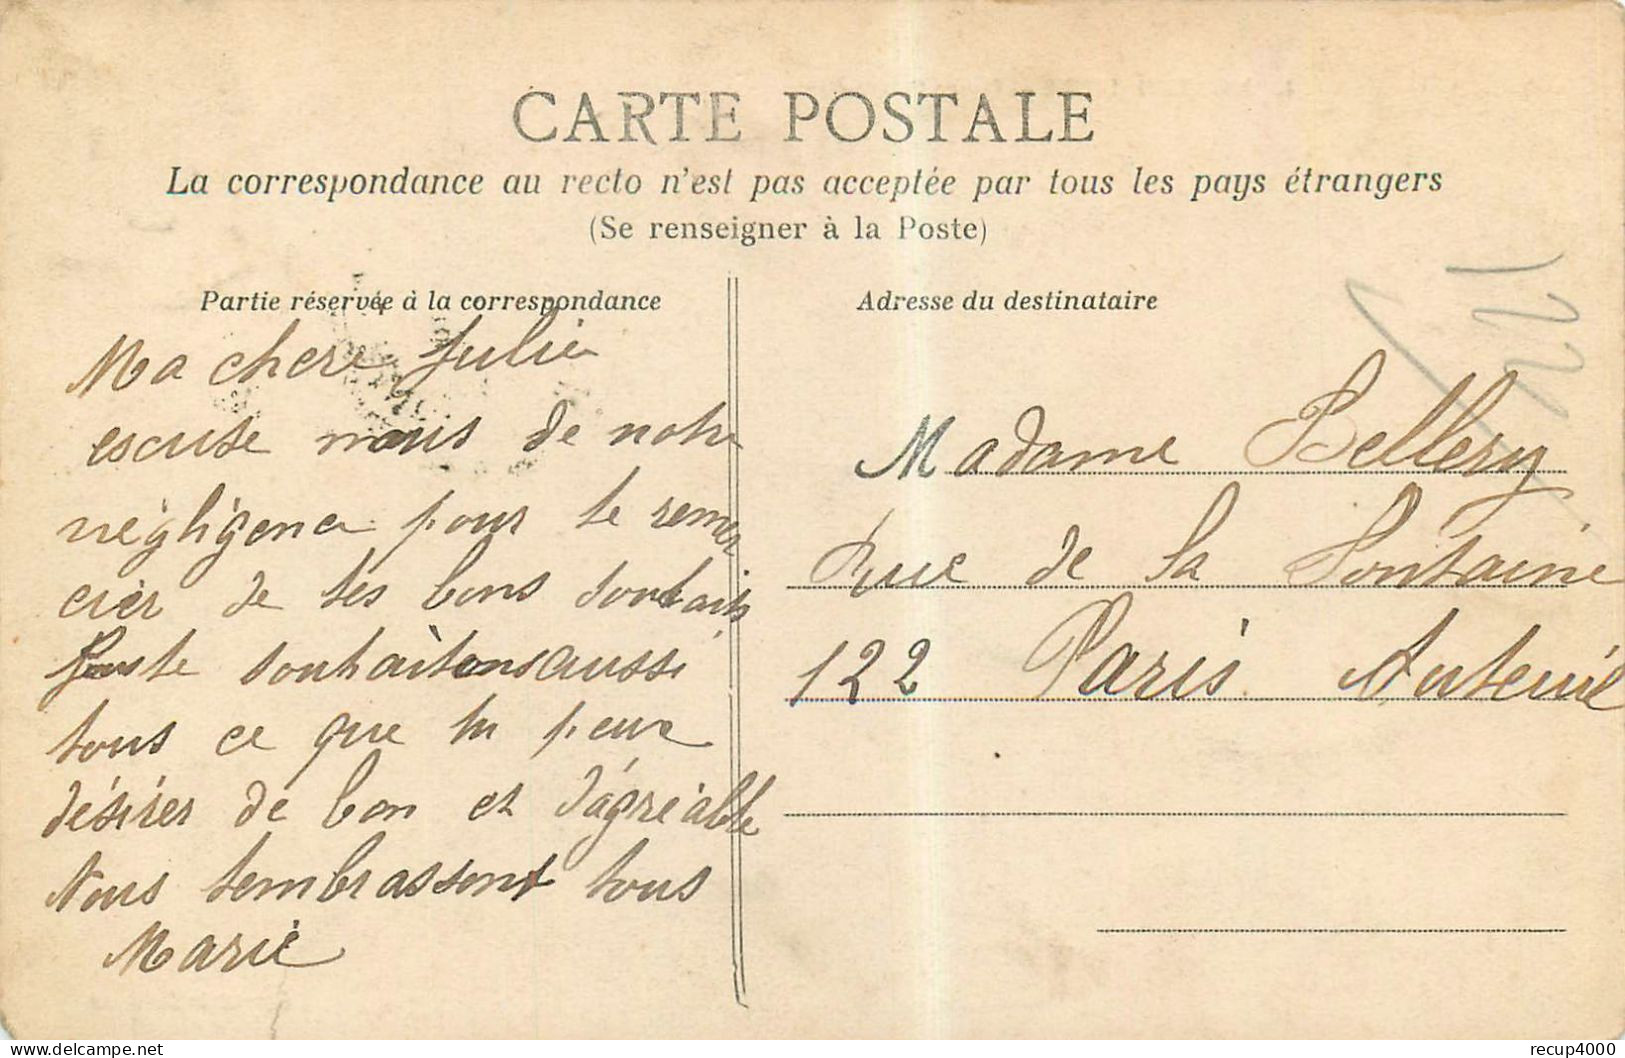 CARTE POSTALE
La correspondance au recto n'est pas acceptée par tous les pays étrangers
(Se renseigner à la Poste)
Partie réservée à la correspondance
Ma chere Julie
escuse nous de notre
négligence pour te remer
cier de tes bons souhaits
souhaitons aussi
tous ce que tu peux
désirer de bon et d'agréable
Nous tembrassont tous
Marie
Adresse du destinataire
Madame Bellery
Rue de la Fontaine
122 Paris Auteuil
122
delcampe.net
recup4000